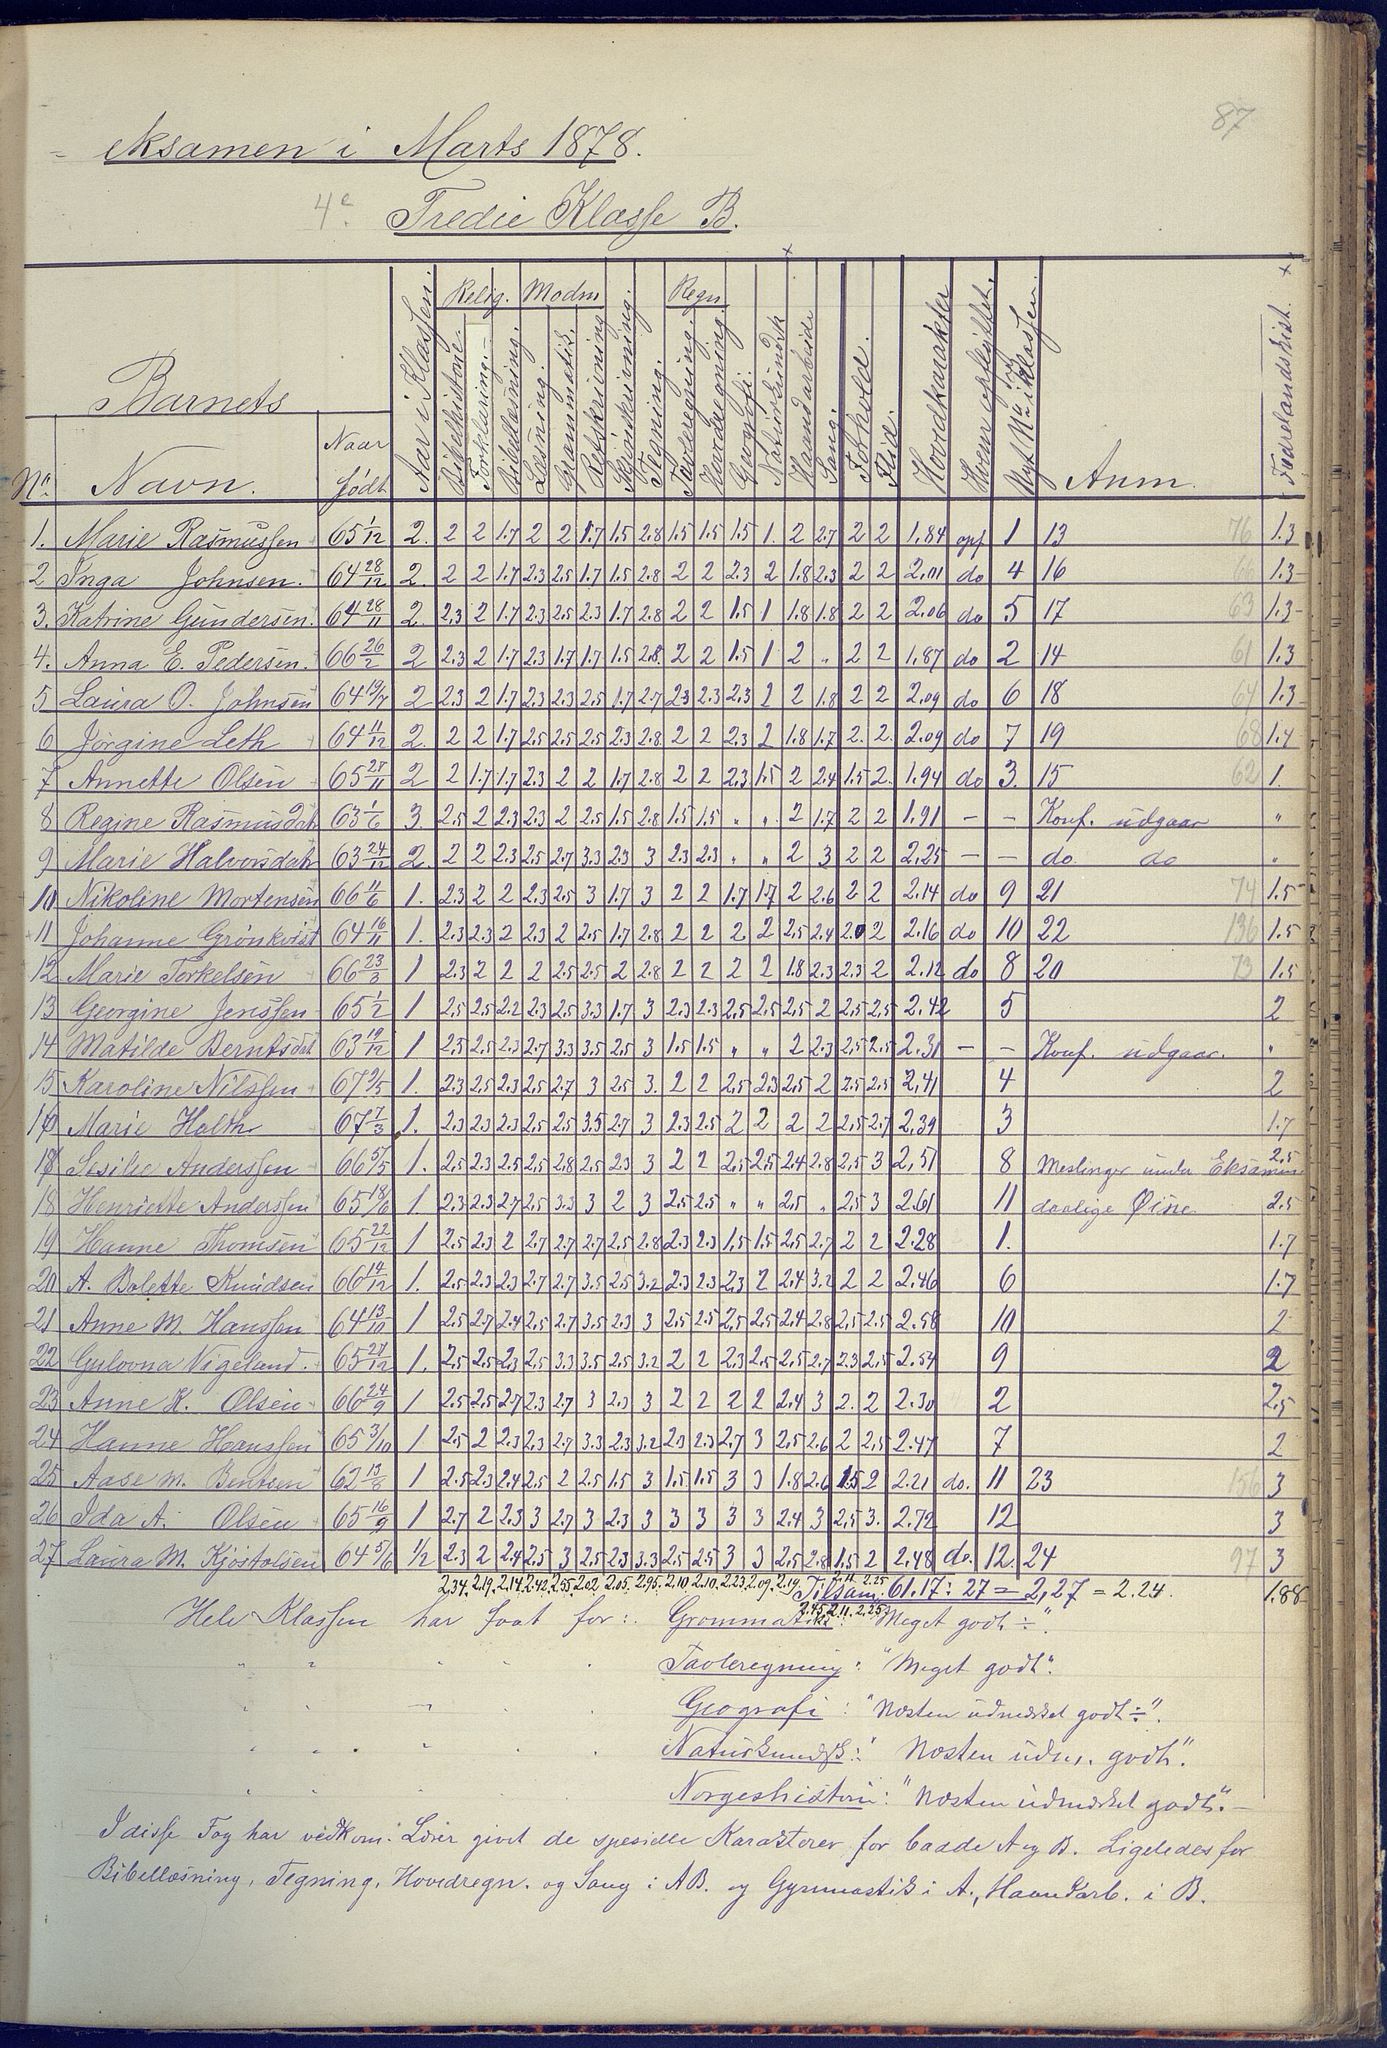 87
eksamen i Marts 1878.
4e Tredie Klasse B.
Barnets
No. Navn. Naar født Aar i Klassen. Relig. Bibelhistorie Forklaring. Bibellæsning. Modm Læsning. Grammatik. Retskrivning Skjønskrivning. Tegning. Regn. Tavleregning. Hovedregning. Geografi. Naturkundsk × Haandarbeide Sang. Forhold. Flid. Hovedkarakter Hvem opflyttet. Nyt No. i Klassen. Anm. Fædrelandshist. ×
1. Marie Rasmussen 65 1/12 2. 2 2 1.7 2 2 1.7 1.5 2.8 1.5 1.5 1.5 1. 2 2.7 2 2 1.84 opf 1 13 76 1.3
2 Inga Johnsen. 64 28/12 2. 2 2 1.7 2.3 2.5 1.7 1.5 2.8 2 2 2.3 2 1.8 2.3 2 2 2.01 do 4 16 66 1.3
3. Katrine Gundersen. 64 28/11 2. 2.3 2 1.7 2.3 2.5 2.3 1.7 2.8 2 2 1.5 1 1.8 1.8 2 2 2.06 do 5 17 63 1.3
4. Anna E. Pedersen. 66 26/2 2 2.3 2 1.7 2.3 1.7 1.7 1.5 2.8. 2 2 1.5 1 2 „ 2 2 1.87 do 2 14 61 1.3
5 Laura O. Johnsen 64 19/7 2 2.3 2 1.7 2.3 2.3 2.5 1.7 2.7 2.3 2.3 2.3 2 2 1.8 2 2 2.09 do 6 18 64 1.3
6 Jørgine Leth 64 11/12 2. 2 2 1.7 2.5 2.5 2.5 2.3 2.8 2 2 2.3 2 1.8 1.7 2. 2. 2.09 do 7 19 68 1.4
7 Annette Olsen 65 27/11 2 2 1.7 1.7 2.3 2 2 1.7 2.8 2 2 2.3 1.5 2 2.4 1.5 2. 1.94 do 3. 15 62 1.
8 Regine Rasmusdatr 63 1/6 3. 2.5 2 2.3 2.3 2 2.5 1.5 2.8 1.5 1.5 „ „ 2 1.7 2 2 1.91 — — Konf. udgaar „
9 Marie Halvorsdatr 63 24/12 2. 2 2 2.3 2.5 2.7 3.3 2.3 3 2.3 2.3 „ „ 2 3 2 2 2.25 — — do do „
10 Nikoline Mortensen 66 11/6 1. 2.3 2 2 2.3 2.5 3 1.7 3 2 2 1.7 1.7 2 2.6 2 2 2.14 do 9 21 74 1.5
11 Johanne Grönkvist 64 16/11 1. 2.3 2.3 2 2.3 2 2.5 1.7 2.8 2 2 2 2 2.5 2.4 2.0 2 2.16 do 10 22 136 1.5
12 Marie Torkelsen 66 23/3 1 2.3 2 2 2 2.5 2.5 2 2.8 2 2 2 2 1.8 2.3 2.3 2 2.12 do 8 20 73 1.5
13 Georgine Jenssen 65 1/2 1 2.5 2.5 2.2 2.3 2.5 3.3 1.7 3 2.3 2.3 2.5 2.5 2.5 2 2.5 2.5 2.42 5 2
14 Matilde Berntsdat 63 19/12 1 2.5 2.5 2.3 2.7 3.3 3.5 2.5 3 1.5 1.5 „ „ 2 2.3 2.5 2.5 2.31 — — Konf. udgaar. „
15 Karoline Nilssen 67 2/5 1. 2.3 2.5 2.3 2.5 2.7 3 2.5 3. 2 2 2.5 2.3 2.5 2 2.5 2.5 2.41 4 2
16 Marie Holth 67 7/3 1. 2.3 2.3 2.3 2.5 2.5 3.5 2.7 3 2.3 2.5 2 2 2 2 2.5 2.7 2.39 3 1.7
17 Sesilie Anderssen 66 5/5 1. 2.5 2.3 2.5 2.5 2.8 2.5 2.3 3 2 2 2.5 2.5 2.4 2.8 2.5 3 2.51 8 Meslinger under Eksamen 2.5
18 Henriette Anderssen 65 18/6 1. 2.3 2.3 2.7 2.5 3.3 3 2 3 2.5 2.5 „ „ 2.5 „ 2.5 3 2.61 11 daarlige Øine 2.5
19 Hanne Thomsen 65 22/12 1 2.5 2.3 2 2.7 2.7 2.7 2.5 2.8 2.3 2.3 1.5 1.5 2.5 2.7 2 2 2.28 1. 1.7
20 A. Bolette Knudsen 66 14/12 1. 2.5 2.3 2.3 2.7 2.7 3.5 2.5 3.2 2.3 2.3 2.3 2 2.4 3.2 2 2 2.46 6 1.7
21 Anne M. Hanssen 64 13/10 1 2.5 2.7 2.4 2.5 2.7 3.5 2.3 3 2.5 2.5 2.5 2.5 2.4 2.8 2.5 2.5 2.58 10 2
22 Gulovna Vigeland. 65 27/12 1. 2.5 2.5 2.3 2.5 3.3 3.5 2.5 3.2 2 2 2.3 2.5 2.5 2.7 2.3 2.5 2.54 9 2
23 Anne K. Olsen 66 24/9 1 2.5 2.5 2.7 2.3 2.7 3 2.3 3 2 2 2 2 2.4 3 2. 2 2.30 2 2.5
24 Hanne Hanssen 65 3/10 1 2.5 2 2.3 2.3 2.7 3.3 2.3 3.2 2.3 2.3 2.7 3 2.5 2.6 2 2.5 2.47 7 2
25 Aase M. Bentsen 62 13/8 1 2.5 2.3 2.4 2.5 2 2.5 1.5 3 1.5 1.5 3 3 1.8 2.6 1.5 2 2.21 do. 11 23 156 3
26 Ida A. Olsen 65 16/9 1 2.7 2 2.3 3 2.7 3 2.3 3 3 3 3 3 2.4 3 2.5 3. 2.72 12 3
27 Laura M. Kjöstolsen 64 5/6 1/2 2.3 2 2.4 2.5 3 2.5 2.3 3.3 2.5 2.5 3 3 2.5 2.8 1.5 2 2.48 do. 12. 24 97 3
2.34. 2.19. 2.14 2.42. 2.55 2.02. 2.05. 2.95. 2.10 2.10. 2.23 2.09. 2.19. Tilsam. 61.17 : 27 = 2,27 = 2.24. 1.88
2.45 2.11. 2.25
Hele Klassen har faat for: Grammatik: "Meget godt ÷".
" " " " " Tavleregning: "Meget godt".
" " " " " Geografi: "Næsten udmærket godt ÷".
" " " " " Naturkundsk: "Næsten udm. godt".
" " " " " Norgeshistorie: "Næsten udmærket godt". —
I disse Fag har vedkom. Lærer givet de spesielle Karakterer for baade A og B. Ligeledes for
Bibellæsning, Tegning, Hovedregn. og Sang i AB. og Gymnastik i A., Haandarb. i B.